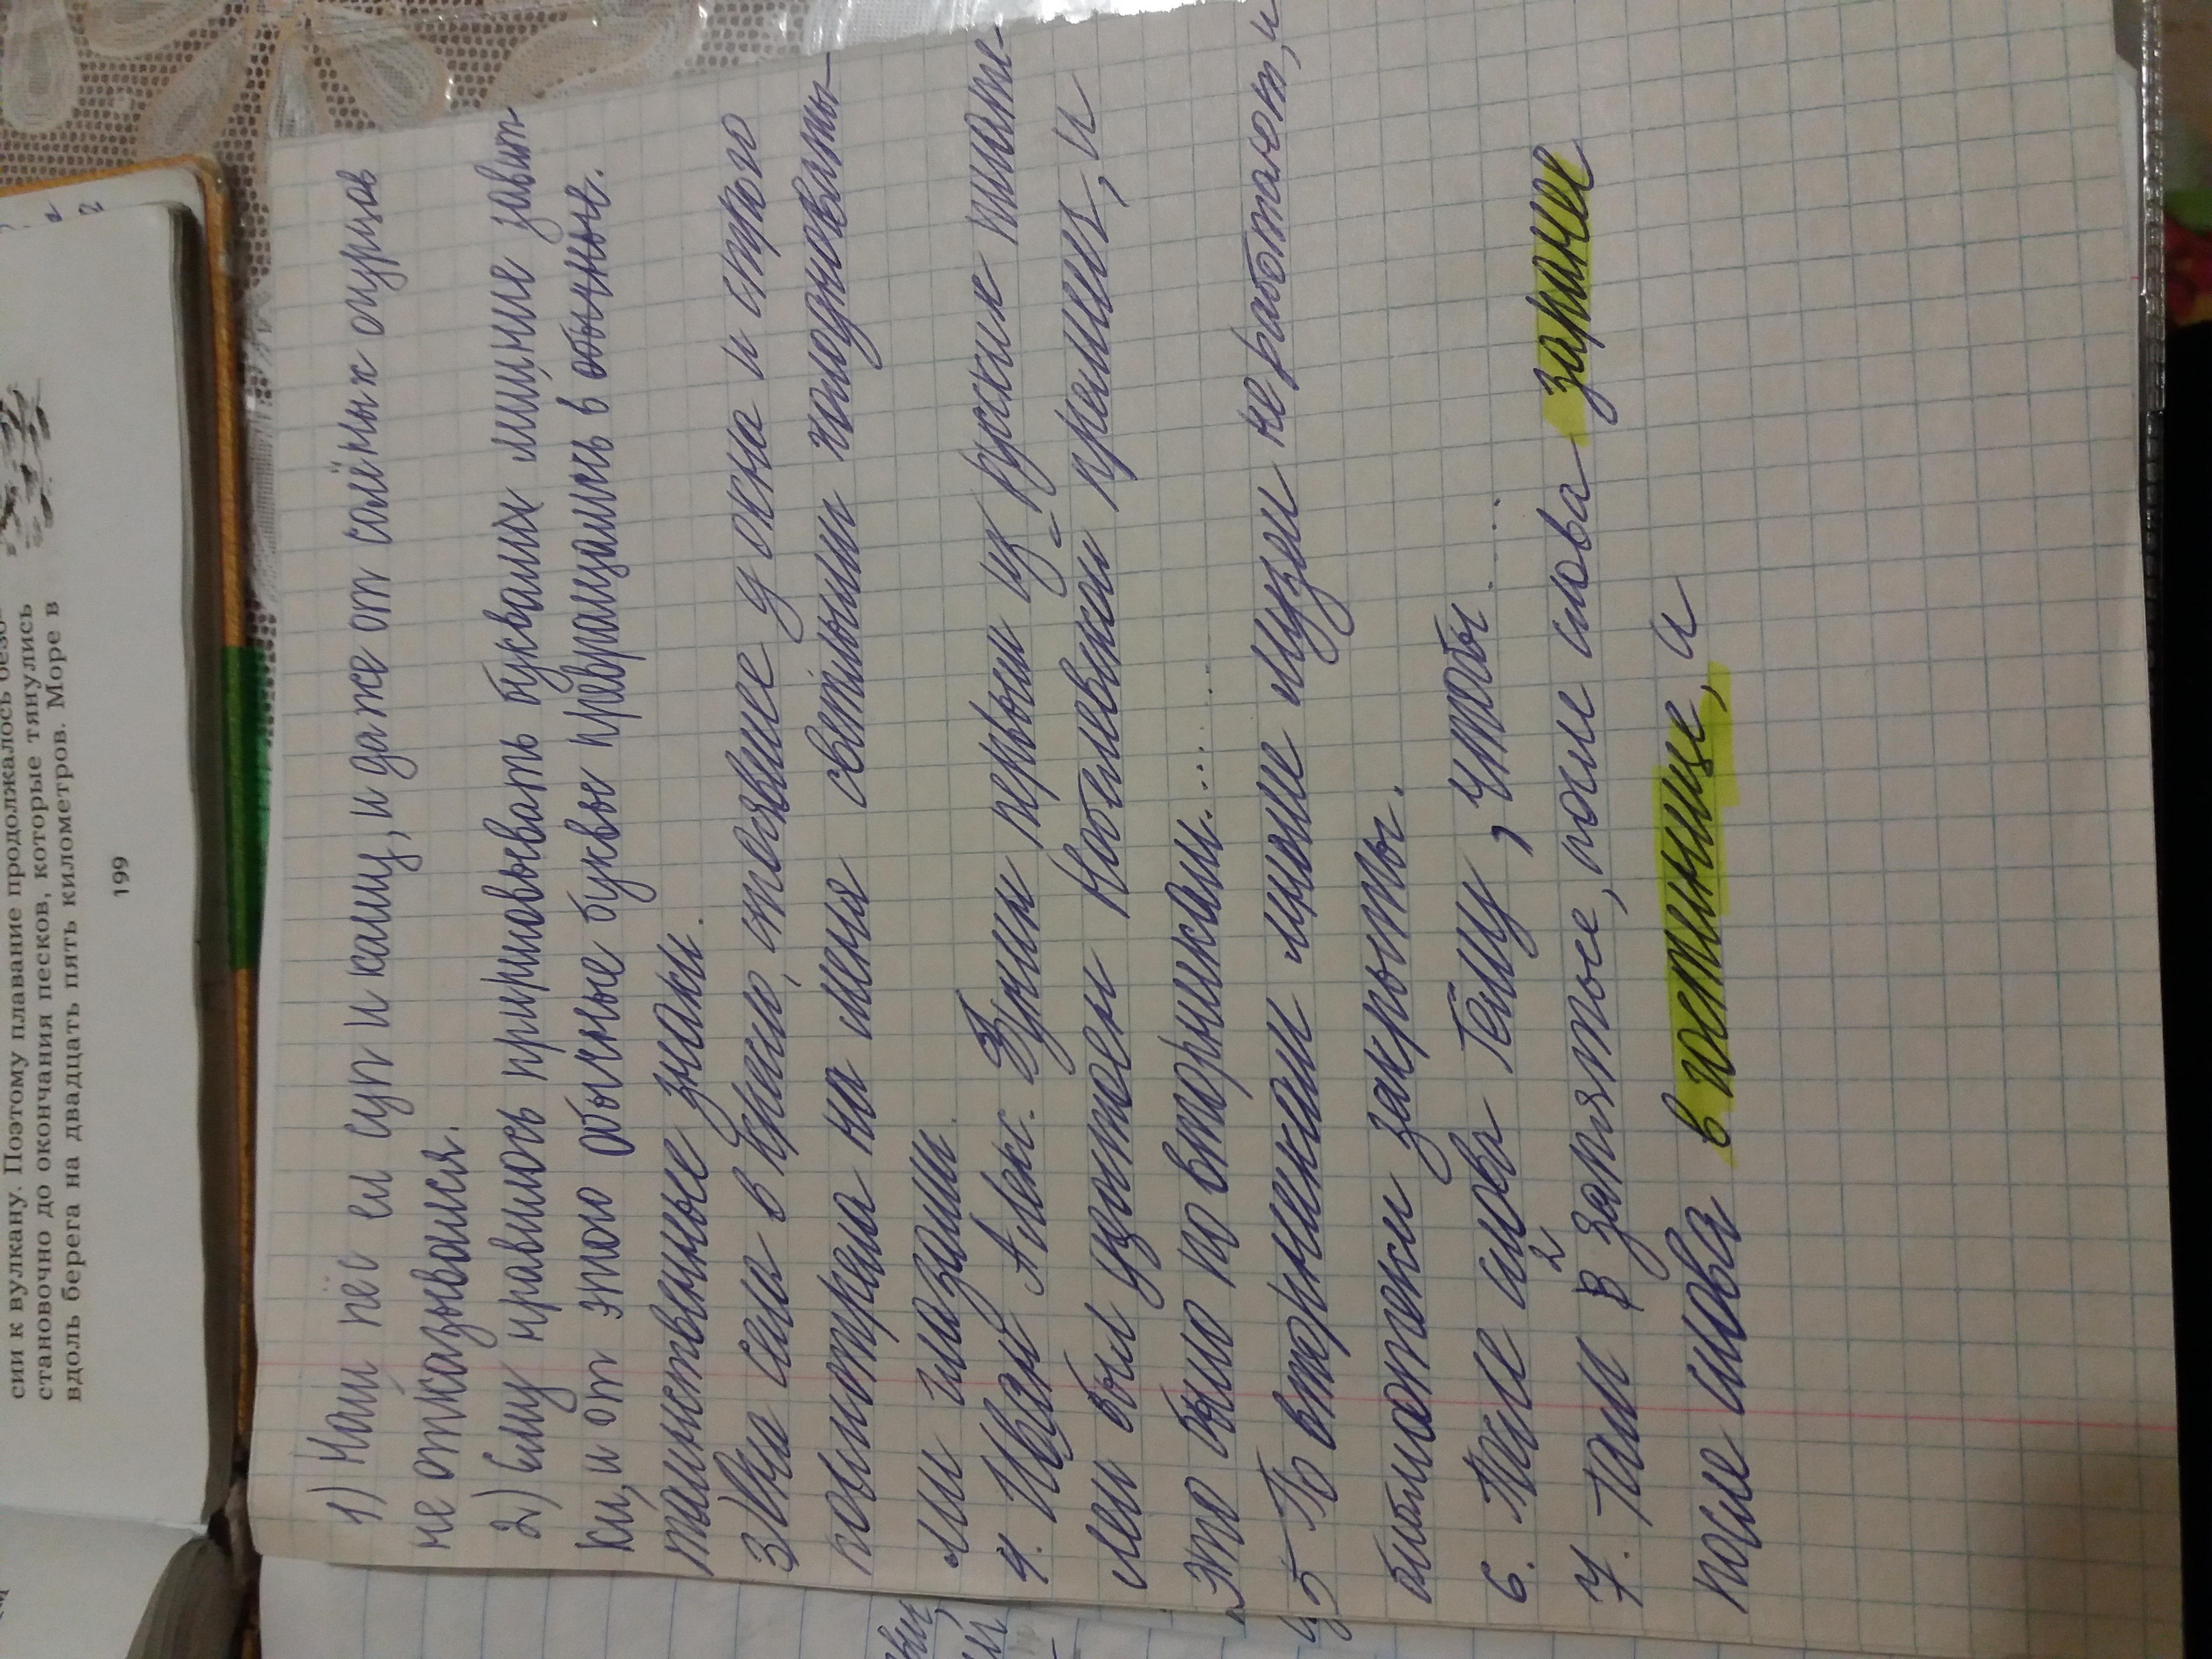 сии к вулкану. Поэтому плавание продолжалось безо-
становочно до окончания песков, которые тянулись
вдоль берега на двадцать пять километров. Море в
199
1) Наш пёс ел суп и кашу, и даже от солёных огурцов
не отказывался.
2) Ему нравилось пририсовывать буквам лишние завит-
ки, и от этого обычные буквы превращались в обычные.
таинственные знаки.
3) Она села в кресло, стоявшее у окна и строго
посмотрела на меня светлыми полузакрыты-
ми глазами.
4. Иван Алекс. Бунин первым из русских писате-
лей был удостоен Нобелевской премии, и
это было по вторникам......
5 По вторникам многие музеи не работают, и
библиотеки закрыты.
6. После слова Тёму, чтобы.....
7. Там 2 запятые, после слова заранее
после слова в гостинице, и